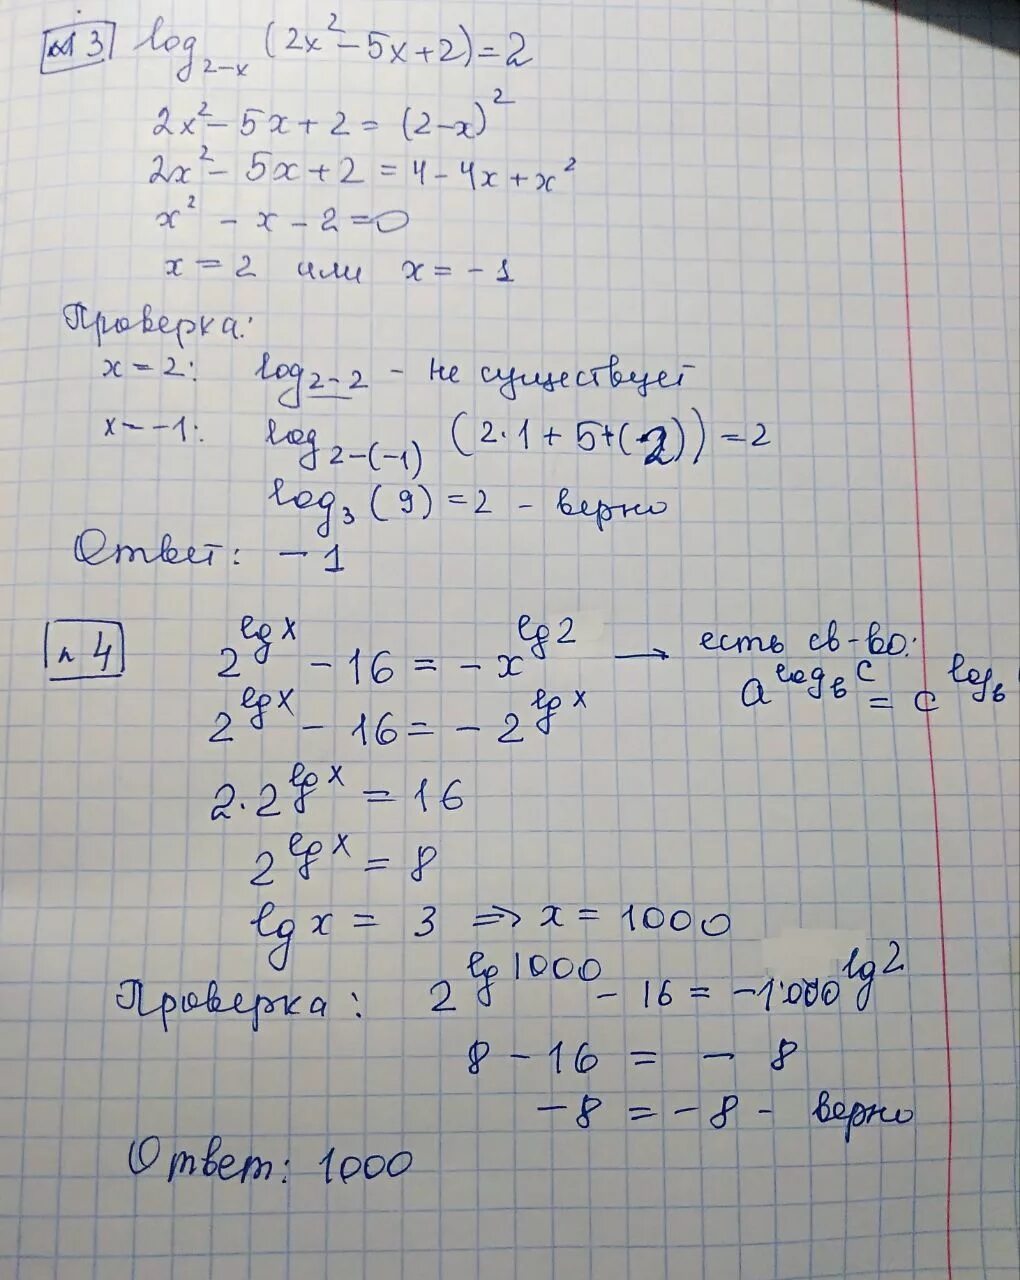 №3 log₂₋ₓ (2x² - 5x + 2) = 2
2x² - 5x + 2 = (2-x)²
2x² - 5x + 2 = 4 - 4x + x²
x² - x - 2 = 0
x = 2 или x = -1
Проверка:
x = 2: log₂₋₂ - не существует
x = -1: log₂₋₍₋₁₎ (2·1 + 5+(-2)) = 2
log₃ (9) = 2 - верно
Ответ: -1
n 4 2^(lg x) - 16 = -x^(lg 2) → есть св-во:
a^(log_b c) = c^(log_b
2^(lg x) - 16 = -2^(lg x)
2·2^(lg x) = 16
2^(lg x) = 8
lg x = 3 => x = 1000
Проверка: 2^(lg 1000) - 16 = -1000^(lg 2)
8 - 16 = - 8
-8 = -8 - верно
Ответ: 1000